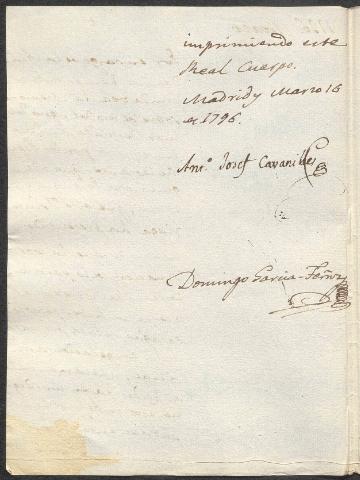 imprimiendo este
Real Cuerpo.
Madrid y Marzo 16
de 1796.
Ant.º Josef Cavanilles
Domingo Garcia-Fern.z